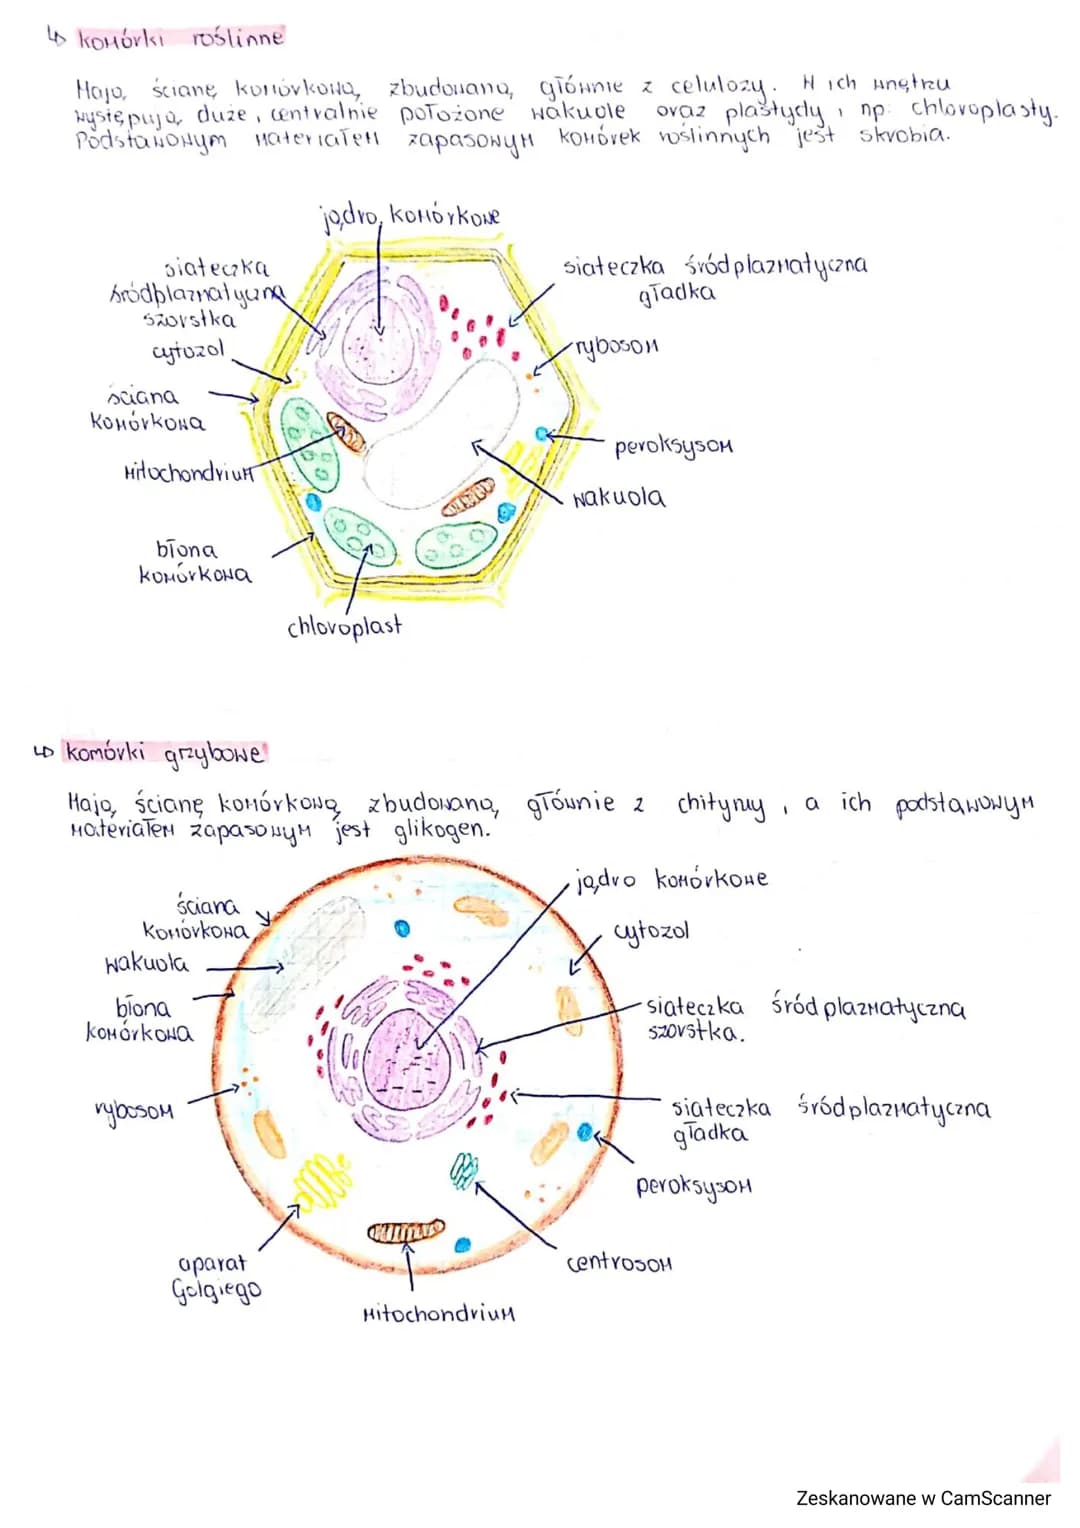 komórki roślinne
Mają ścianę komórkową zbudowaną głównie z celulozy. W ich wnętrzu
występują duże, centralnie położone wakuole oraz plastydy, np. chloroplasty.
Podstawowym materiałem zapasowym komórek roślinnych jest skrobia.
jądro komórkowe
siateczka
śródplazmatyczna
szorstka
siateczka śródplazmatyczna
gładka
cytozol
rybosom
ściana
komórkowa
peroksysom
mitochondrium
wakuola
błona
komórkowa
chloroplast
komórki grzybowe
Mają ścianę komórkową zbudowaną głównie z chityny, a ich podstawowym
materiałem zapasowym jest glikogen.
jądro komórkowe
ściana
komórkowa
cytozol
wakuola
błona
komórkowa
siateczka śródplazmatyczna
szorstka.
rybosom
siateczka śródplazmatyczna
gładka
peroksysom
aparat
Golgiego
centrosom
mitochondrium
Zeskanowane w CamScanner